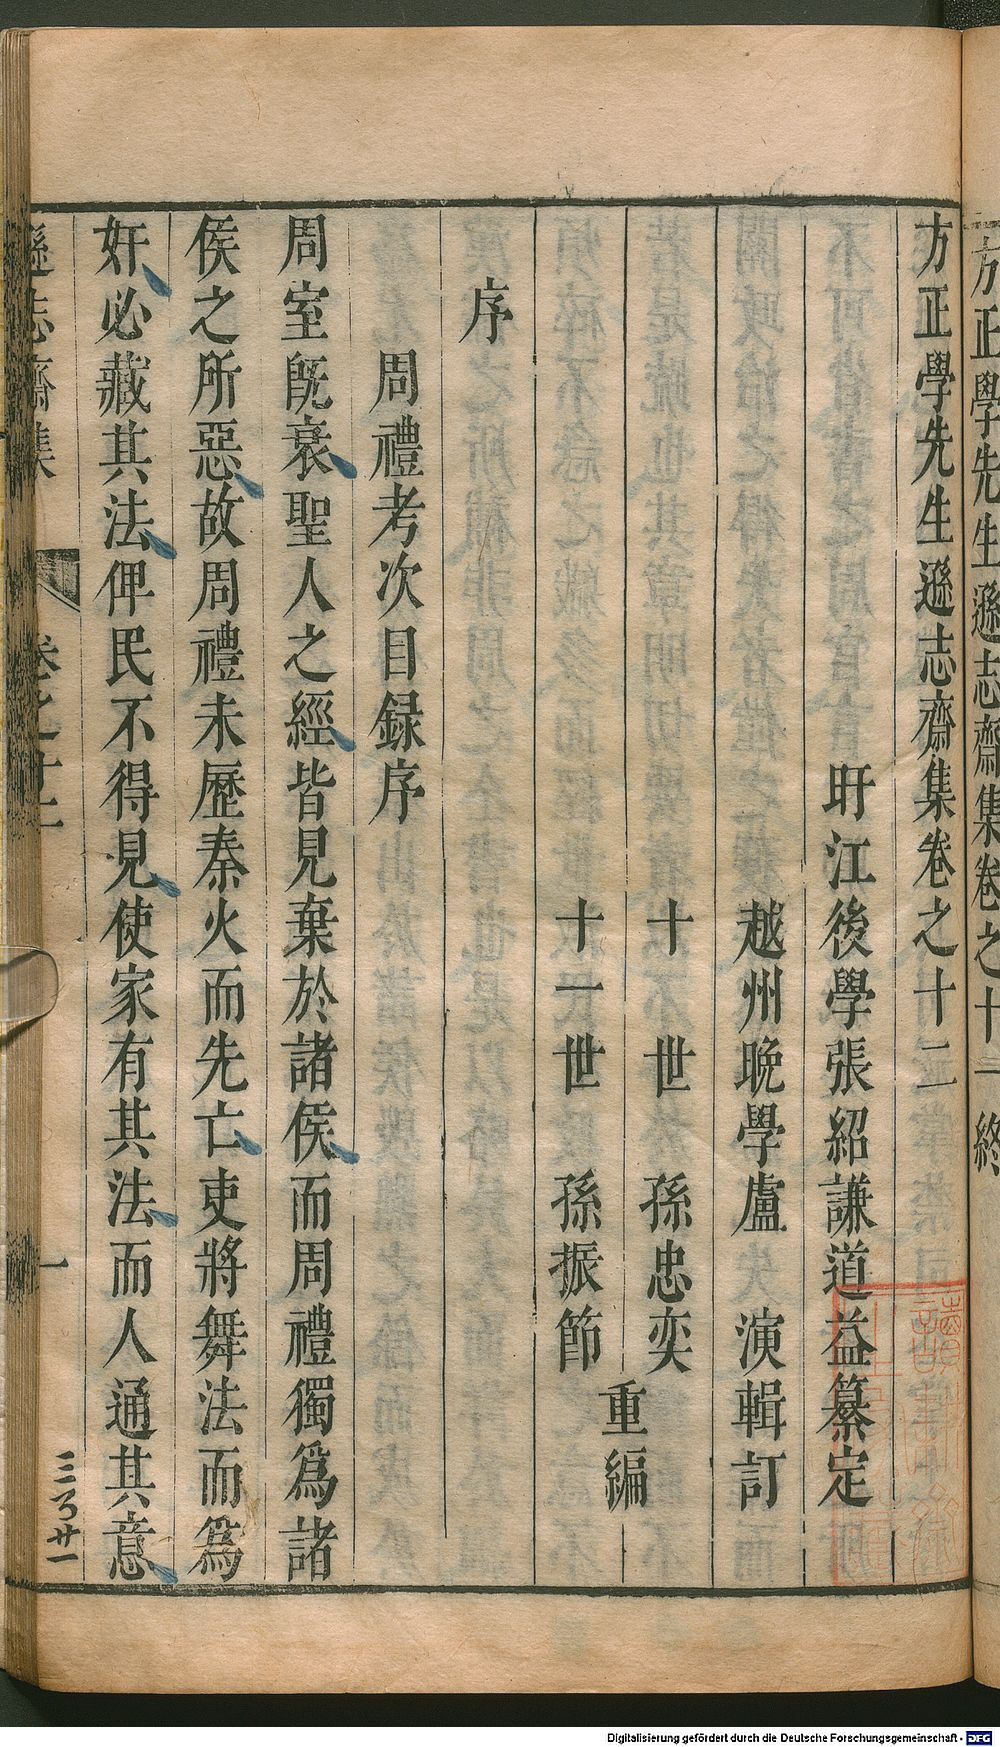 方正學先生遜志齋集卷之十 終
方正學先生遜志齋集卷之十二
盱江後學張紹謙道益纂定
越州晚學盧 演輯訂
十 世 孫忠奕
十一世 孫振節
重編
序
周禮考次目録序
周室旣衰聖人之經皆見棄於諸侯而周禮獨爲諸
侯之所惡故周禮未歷秦火而先亡吏將舞法而爲
奸必藏其法俾民不得見使家有其法而人通其意
遜志齋集 卷之十二 一
Digitalisierung gefördert durch die Deutsche Forschungsgemeinschaft - DFG